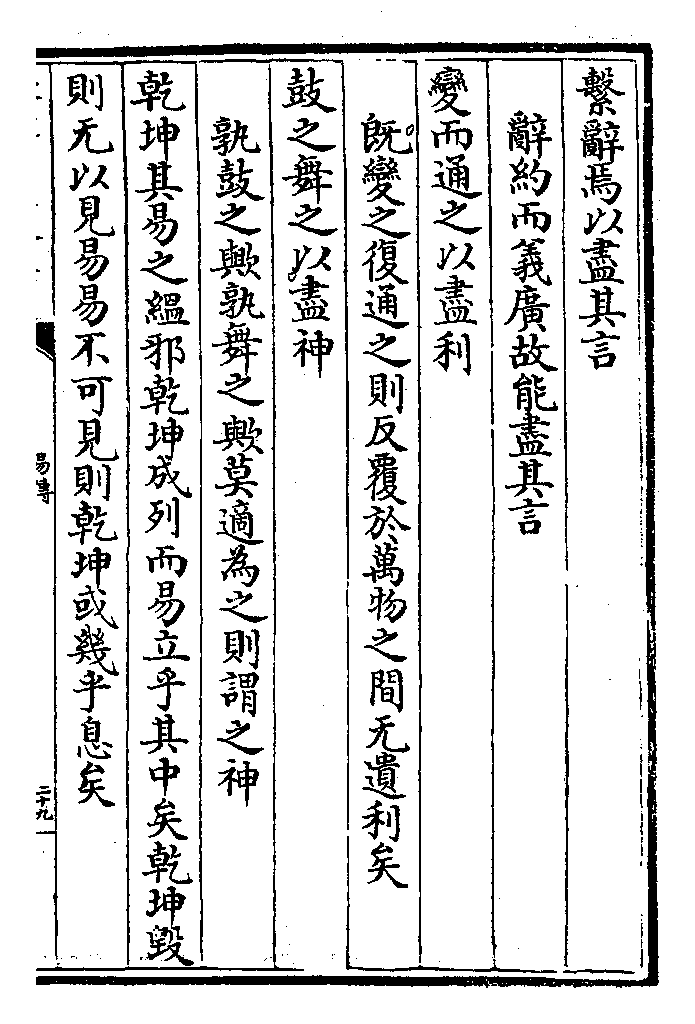 繫辭焉以盡其言
辭約而義廣故能盡其言
變而通之以盡利
旣變之復通之則反覆於萬物之間无遺利矣
鼓之舞之以盡神
孰鼓之歟孰舞之歟莫適為之則謂之神
乾坤其易之縕邪乾坤成列而易立乎其中矣乾坤毀
則无以見易易不可見則乾坤或幾乎息矣
易傳
二十九